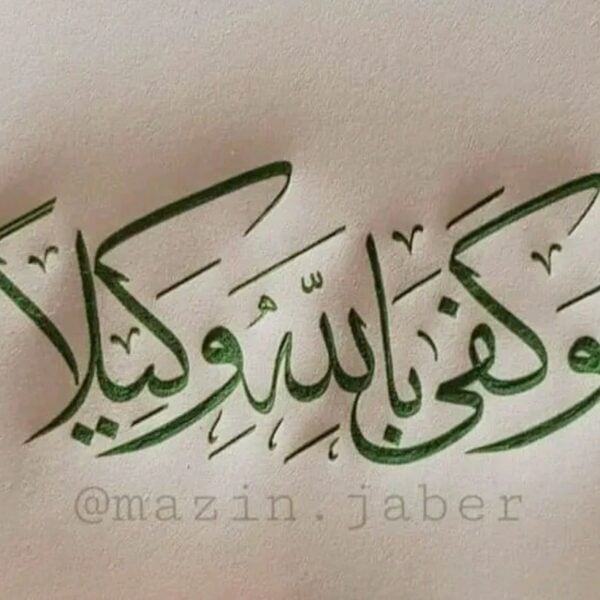 وَكَفَىٰ بِاللَّهِ وَكِيلًا
@mazin.jaber